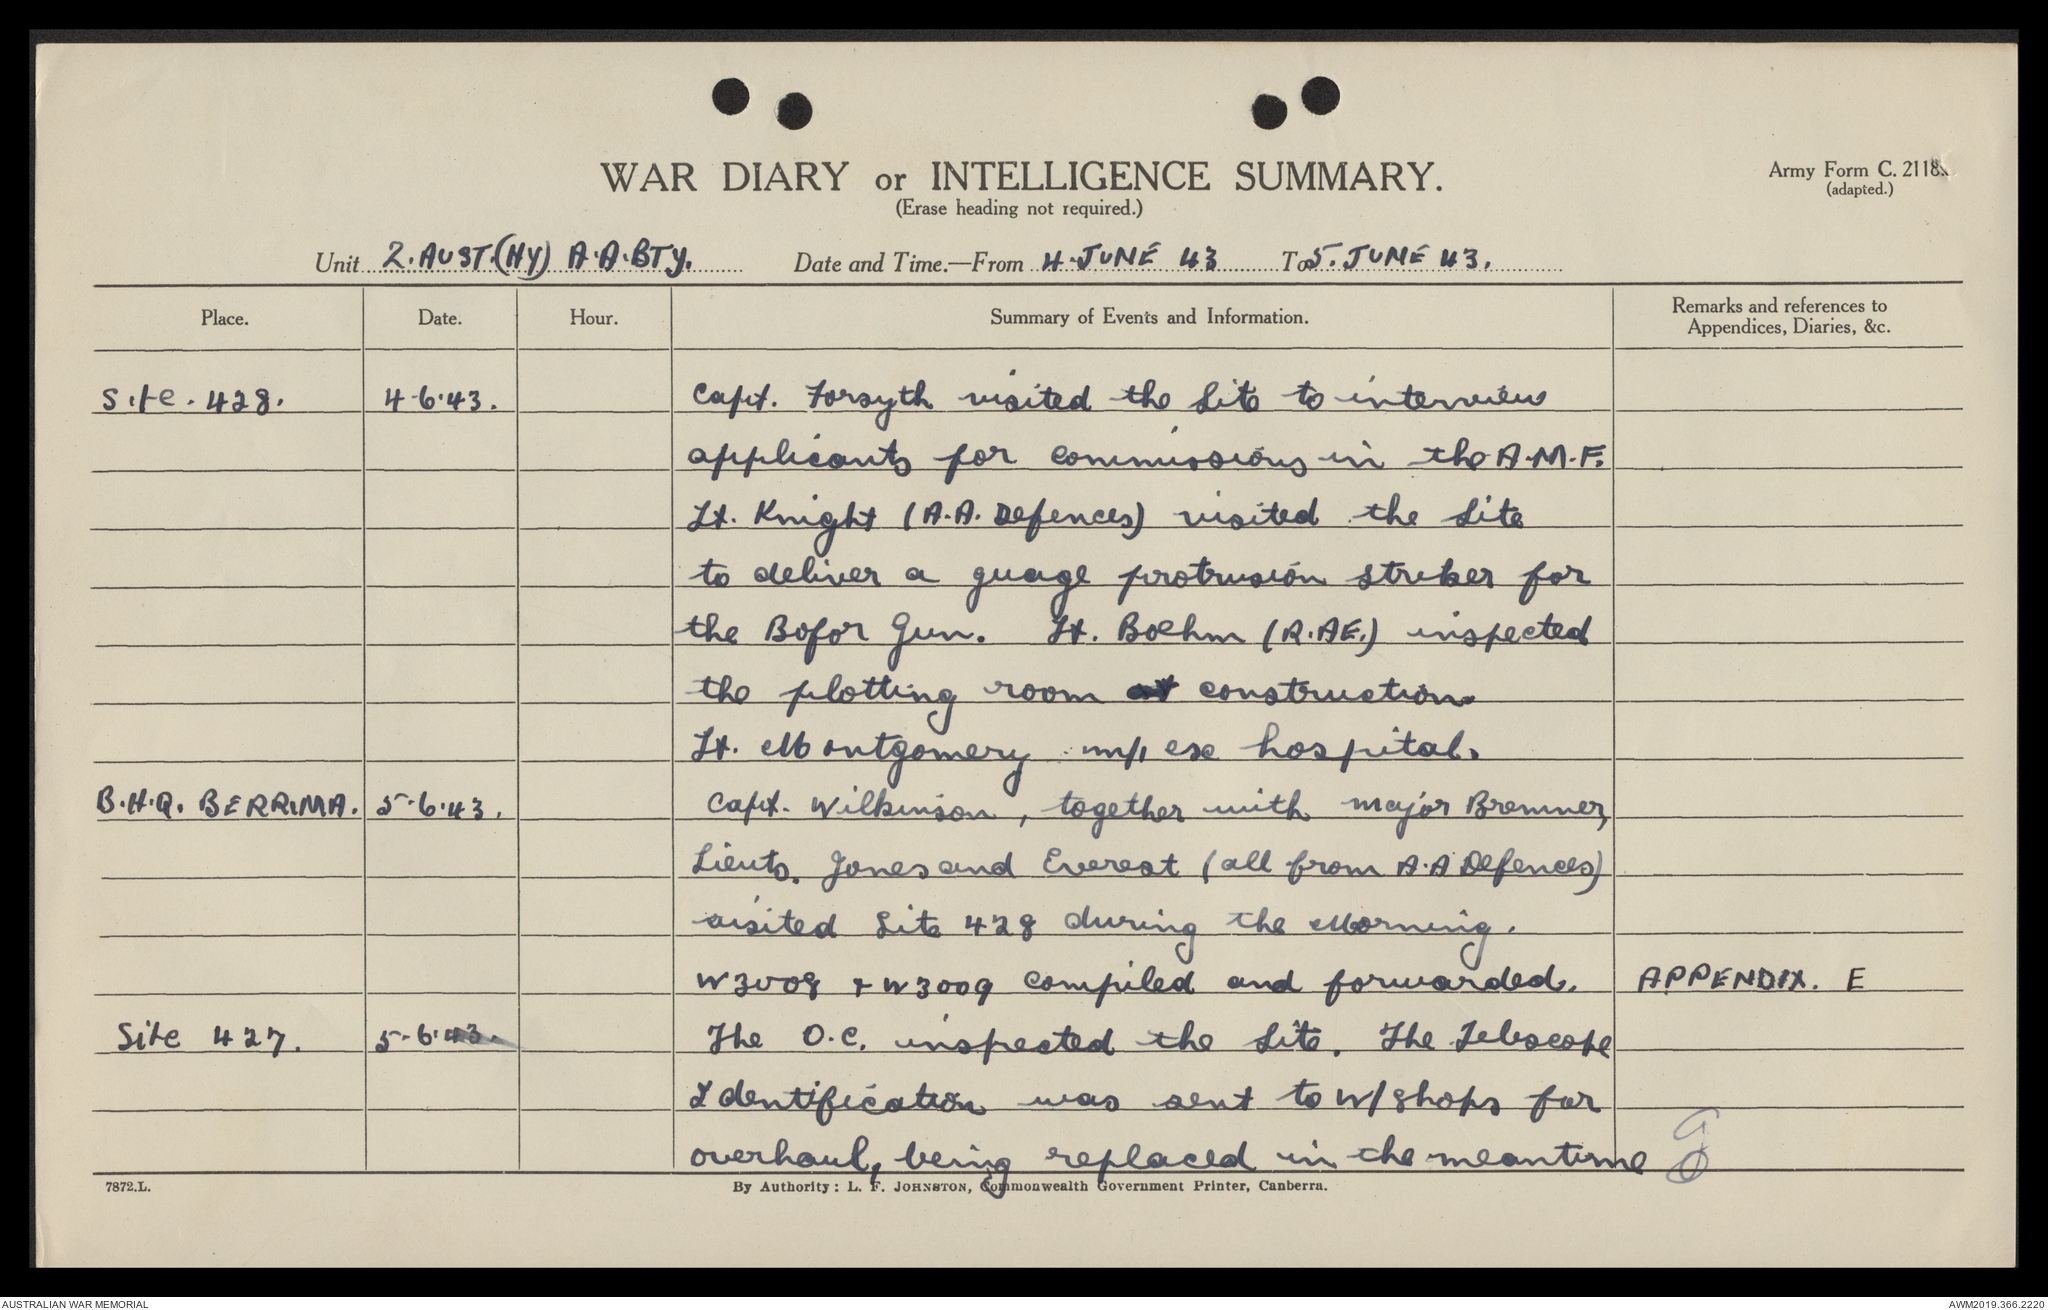 WAR DIARY or INTELLIGENCE SUMMARY.
Army Form C. 2118.
(adapted.)
(Erase heading not required.)
Unit 2. AUST. (HY) A.A. BTY. Date and Time.—From 4. JUNE 43 To 5. JUNE 43.
Place. Date. Hour. Summary of Events and Information. Remarks and references to
Appendices, Diaries, &c.
Site. 428. 4.6.43. Capt. Forsyth visited the Site to interview
applicants for commissions in the A.M.F.
Lt. Knight (A.A. Defences) visited the Site
to deliver a guage protrusion striker for
the Bofor Gun. Lt. Boehm (R.A.E.) inspected
the plotting room construction.
Lt. Montgomery m/i ex hospital.
B.H.Q. BERRIMA. 5.6.43. Capt. Wilkinson, together with Major Bremner,
Lieuts. Jones and Everest (all from A.A Defences)
visited Site 428 during the Morning.
W3008 + W3009 compiled and forwarded. APPENDIX. E
Site 427. 5.6.43. The O.C. inspected the Site. The Telescope
Identification was sent to W/shops for
overhaul, being replaced in the meantime
7872.L. By Authority: L. F. JOHNSTON, Commonwealth Government Printer, Canberra.
AUSTRALIAN WAR MEMORIAL AWM2019.366.2220